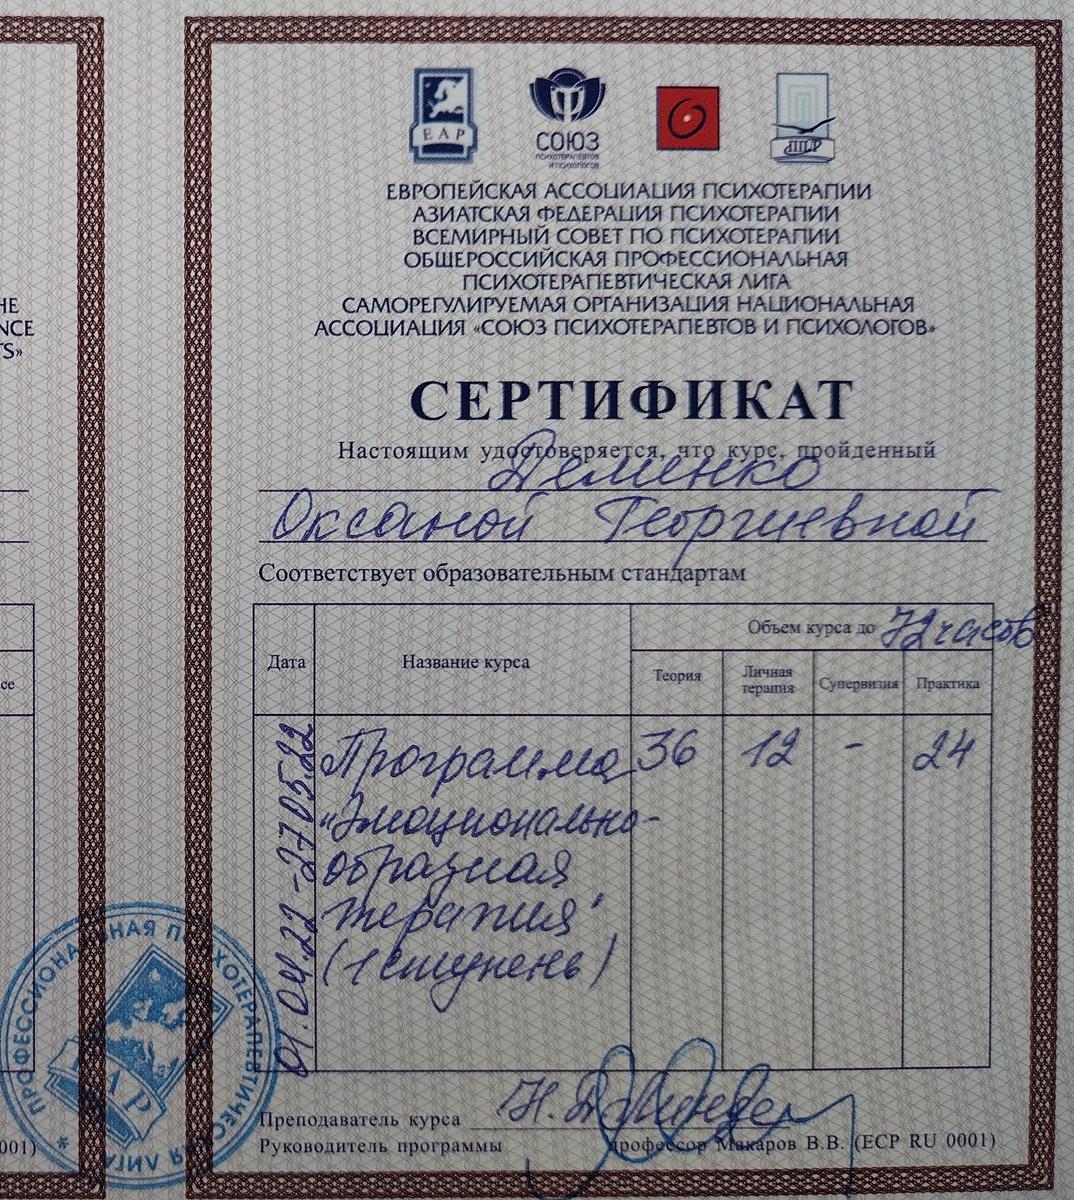 НЕ
NCE
TS»
ce
001)
EAP
СОЮЗ
ПСИХОТЕРАПЕВТОВ
И ПСИХОЛОГОВ
ППЛ
ЕВРОПЕЙСКАЯ АССОЦИАЦИЯ ПСИХОТЕРАПИИ
АЗИАТСКАЯ ФЕДЕРАЦИЯ ПСИХОТЕРАПИИ
ВСЕМИРНЫЙ СОВЕТ ПО ПСИХОТЕРАПИИ
ОБЩЕРОССИЙСКАЯ ПРОФЕССИОНАЛЬНАЯ
ПСИХОТЕРАПЕВТИЧЕСКАЯ ЛИГА
САМОРЕГУЛИРУЕМАЯ ОРГАНИЗАЦИЯ НАЦИОНАЛЬНАЯ
АССОЦИАЦИЯ «СОЮЗ ПСИХОТЕРАПЕВТОВ И ПСИХОЛОГОВ»
СЕРТИФИКАТ
Настоящим удостоверяется, что курс, пройденный
Деменко
Оксаной Георгиевной
Соответствует образовательным стандартам
Объем курса до 72 часов
Дата
Название курса
Теория
Личная
терапия
Супервизия
Практика
01.04.22-27.05.22
Программа 36 12 - 24
"Эмоционально-
образная
терапия"
(1 ступень)
ПРОФЕССИОНАЛЬНАЯ ПСИХОТЕРАПЕВТИЧЕСКАЯ ЛИГА *
EAP
Преподаватель курса Н. Д. Линде
Руководитель программы профессор Макаров В.В. (ECP RU 0001)